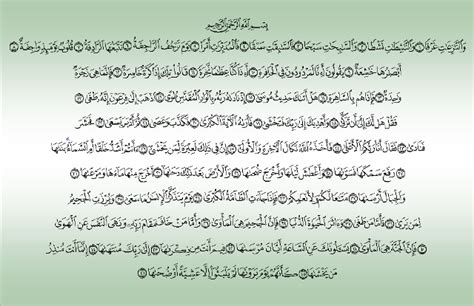 بِسْمِ ٱللَّهِ ٱلرَّحْمَٰنِ ٱلرَّحِيمِ
وَٱلنَّٰزِعَٰتِ غَرْقًا ۝١ وَٱلنَّٰشِطَٰتِ نَشْطًا ۝٢ وَٱلسَّٰبِحَٰتِ سَبْحًا ۝٣ فَٱلسَّٰبِقَٰتِ سَبْقًا ۝٤ فَٱلْمُدَبِّرَٰتِ أَمْرًا ۝٥ يَوْمَ تَرْجُفُ ٱلرَّاجِفَةُ ۝٦ تَتْبَعُهَا ٱلرَّادِفَةُ ۝٧ قُلُوبٌ يَوْمَئِذٍ وَاجِفَةٌ ۝٨
أَبْصَٰرُهَا خَٰشِعَةٌ ۝٩ يَقُولُونَ أَءِنَّا لَمَرْدُودُونَ فِى ٱلْحَافِرَةِ ۝١٠ أَءِذَا كُنَّا عِظَٰمًا نَّخِرَةً ۝١١ قَالُوا۟ تِلْكَ إِذًا كَرَّةٌ خَاسِرَةٌ ۝١٢ فَإِنَّمَا هِىَ زَجْرَةٌ
وَٰحِدَةٌ ۝١٣ فَإِذَا هُم بِٱلسَّاهِرَةِ ۝١٤ هَلْ أَتَىٰكَ حَدِيثُ مُوسَىٰٓ ۝١٥ إِذْ نَادَىٰهُ رَبُّهُۥ بِٱلْوَادِ ٱلْمُقَدَّسِ طُوًى ۝١٦ ٱذْهَبْ إِلَىٰ فِرْعَوْنَ إِنَّهُۥ طَغَىٰ ۝١٧
فَقُلْ هَل لَّكَ إِلَىٰٓ أَن تَزَكَّىٰ ۝١٨ وَأَهْدِيَكَ إِلَىٰ رَبِّكَ فَتَخْشَىٰ ۝١٩ فَأَرَىٰهُ ٱلْءَايَةَ ٱلْكُبْرَىٰ ۝٢٠ فَكَذَّبَ وَعَصَىٰ ۝٢١ ثُمَّ أَدْبَرَ يَسْعَىٰ ۝٢٢ فَحَشَرَ
فَنَادَىٰ ۝٢٣ فَقَالَ أَنَا۠ رَبُّكُمُ ٱلْأَعْلَىٰ ۝٢٤ فَأَخَذَهُ ٱللَّهُ نَكَالَ ٱلْءَاخِرَةِ وَٱلْأُولَىٰٓ ۝٢٥ إِنَّ فِى ذَٰلِكَ لَعِبْرَةً لِّمَن يَخْشَىٰٓ ۝٢٦ ءَأَنتُمْ أَشَدُّ خَلْقًا أَمِ ٱلسَّمَآءُ ۚ بَنَىٰهَا ۝٢٧
رَفَعَ سَمْكَهَا فَسَوَّىٰهَا ۝٢٨ وَأَغْطَشَ لَيْلَهَا وَأَخْرَجَ ضُحَىٰهَا ۝٢٩ وَٱلْأَرْضَ بَعْدَ ذَٰلِكَ دَحَىٰهَآ ۝٣٠ أَخْرَجَ مِنْهَا مَآءَهَا وَمَرْعَىٰهَا ۝٣١
وَٱلْجِبَالَ أَرْسَىٰهَا ۝٣٢ مَتَٰعًا لَّكُمْ وَلِأَنْعَٰمِكُمْ ۝٣٣ فَإِذَا جَآءَتِ ٱلطَّآمَّةُ ٱلْكُبْرَىٰ ۝٣٤ يَوْمَ يَتَذَكَّرُ ٱلْإِنسَٰنُ مَا سَعَىٰ ۝٣٥ وَبُرِّزَتِ ٱلْجَحِيمُ
لِمَن يَرَىٰ ۝٣٦ فَأَمَّا مَن طَغَىٰ ۝٣٧ وَءَاثَرَ ٱلْحَيَوٰةَ ٱلدُّنْيَا ۝٣٨ فَإِنَّ ٱلْجَحِيمَ هِىَ ٱلْمَأْوَىٰ ۝٣٩ وَأَمَّا مَنْ خَافَ مَقَامَ رَبِّهِۦ وَنَهَى ٱلنَّفْسَ عَنِ ٱلْهَوَىٰ ۝٤٠
فَإِنَّ ٱلْجَنَّةَ هِىَ ٱلْمَأْوَىٰ ۝٤١ يَسْـَٔلُونَكَ عَنِ ٱلسَّاعَةِ أَيَّانَ مُرْسَىٰهَا ۝٤٢ فِيمَ أَنتَ مِن ذِكْرَىٰهَآ ۝٤٣ إِلَىٰ رَبِّكَ مُنتَهَىٰهَآ ۝٤٤ إِنَّمَآ أَنتَ مُنذِرُ
مَن يَخْشَىٰهَا ۝٤٥ كَأَنَّهُمْ يَوْمَ يَرَوْنَهَا لَمْ يَلْبَثُوٓا۟ إِلَّا عَشِيَّةً أَوْ ضُحَىٰهَا ۝٤٦